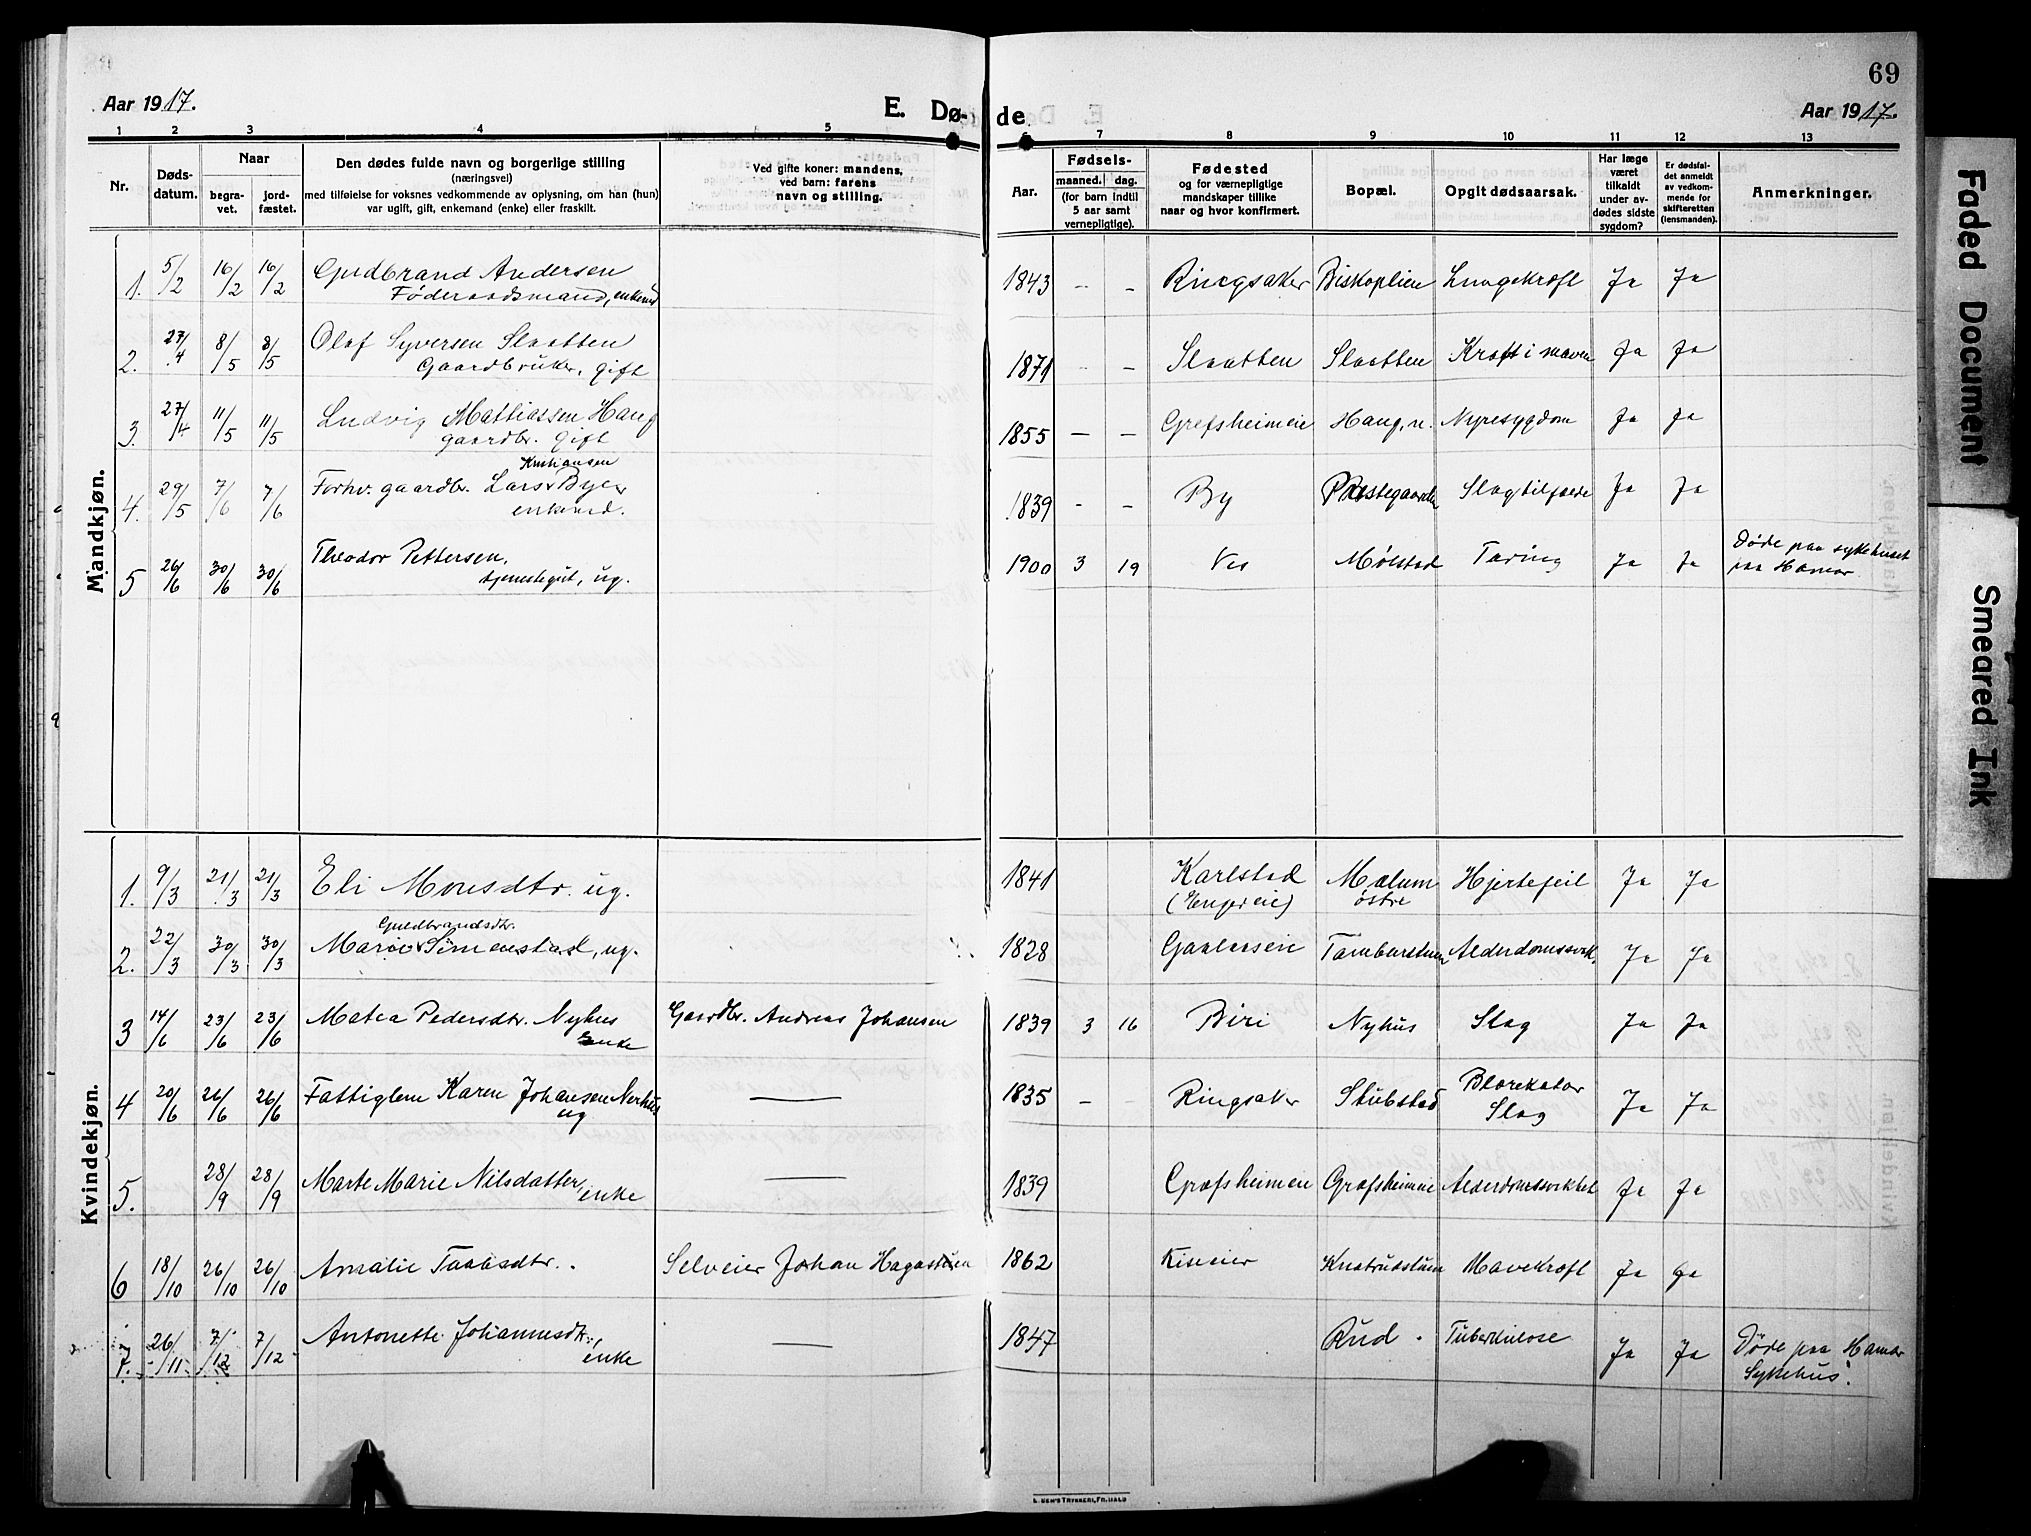 69
Aar 1917.
E. Dø-
de.
Aar 1917.
1 2 3 4 5 6 7 8 9 10 11 12 13
Nr.
Døds-
datum.
Naar
begra-
vet.
jord-
fæstet.
Den dødes fulde navn og borgerlige stilling
(næringsvei)
med tilføielse for voksnes vedkommende av oplysning, om han (hun)
var ugift, gift, enkemand (enke) eller fraskilt.
Ved gifte koner: mandens,
ved barn: farens
navn og stilling.
Aar.
Fødsels-
maaned. dag.
(for barn indtil
5 aar samt
vernepligtige).
Fødested
og for værnepligtige
mandskaper tillike
naar og hvor konfirmert.
Bopæl.
Opgit dødsaarsak.
Har læge
været
tilkaldt
under av-
dødes sidste
sygdom?
Er dødsfal-
det anmeldt
av vedkom-
mende for
skifteretten
(lensmanden).
Anmerkninger.
Mandkjøn.
1. 5/2 16/2 16/2 Gudbrand Andersen 1843 - - Ringsaker Biskoplien Lungekræft Ja Ja
Føderaadsmand, enkemd
2. 27/4 8/5 8/5 Olaf Syversen Slaatten 1871 - - Slaatten Slaatten Kræft i maven Ja Ja
Gaardbruker, gift
3. 27/4 11/5 11/5 Ludvig Mathiassen Haug 1855 - - Grefsheimeie Haug, n. Nyresygdom Ja Ja
gaardbr. gift
Kristiansen
4. 29/5 7/6 7/6 Forhv. gaardbr. Lars Byer 1839 - - By Præstegaarden Slagtilfælde Ja Ja
enkemd.
5 26/6 30/6 30/6 Theodor Pettersen, 1900 3 19 Ves Mølstad Tæring Ja Ja Døde paa sykehuset
tjenestegut, ug. paa Hamar
Kvindekjøn.
1. 9/3 21/3 21/3 Eli Monsdtr. ug. 1841 Karlstad Malum Hjertefeil Ja Ja
(Hengereie) østre
Guldbrandsdtr.
2. 22/3 30/3 30/3 Marie Simenstad, ug. 1828 Gaalerseie Tamburstuen Alderdomssvek. Ja Ja
3 14/6 23/6 23/6 Matea Pedersdtr. Nyhus Gaardbr. Andreas Johansen 1839 3 16 Biri Nyhus Slag Ja Ja
Enke
4 20/6 26/6 26/6 Fattiglem Karen Johansen Nerhus — 1835 - - Ringsaker Stubstad Blærekatar Ja Ja
ug Slag
5. 28/9 28/9 Marte Marie Nilsdatter — 1839 Grefsheimeie Grefsheimeie Alderdomssvækkel Ja Ja
enke
6 18/10 26/10 26/10 Amalie Taalesdtr. Selveier Johan Hagastuen 1862 Kiseeier Knatrudstuen Mavekræft Ja Ja
7. 26/11 7/12 7/12 Antonette Johannesdtr. — 1847 Rud. Tuberkulose Ja Ja Døde paa Hamar
enke Sykehus.
Faded Document
Smeared Ink